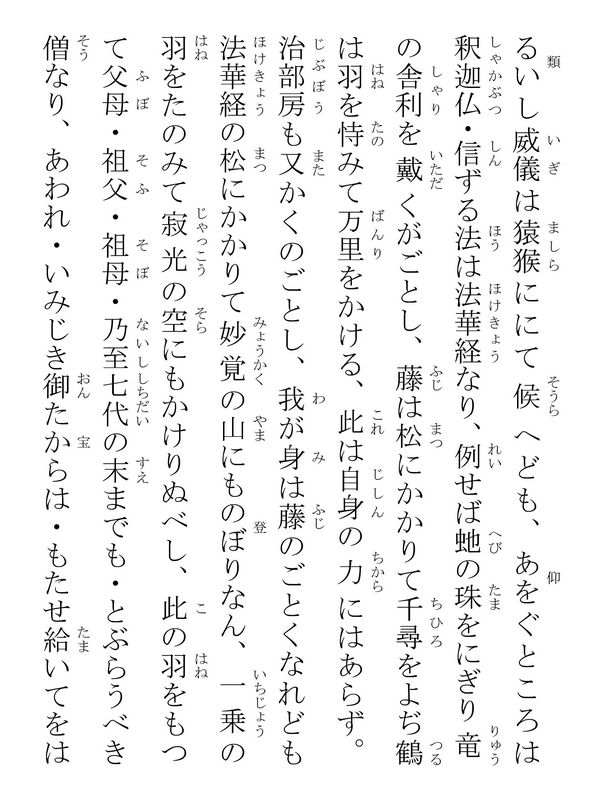 るいし威儀は猿猴ににて候へども、あをぐところは
釈迦仏・信ずる法は法華経なり、例せば虵の珠をにぎり竜
の舎利を戴くがごとし、藤は松にかかりて千尋をよぢ鶴
は羽を恃みて万里をかける、此は自身の力にはあらず。
治部房も又かくのごとし、我が身は藤のごとくなれども
法華経の松にかかりて妙覚の山にものぼりなん、一乗の
羽をたのみて寂光の空にもかけりぬべし、此の羽をもつ
て父母・祖父・祖母・乃至七代の末までも・とぶらうべき
僧なり、あわれ・いみじき御たからは・もたせ給いてをは